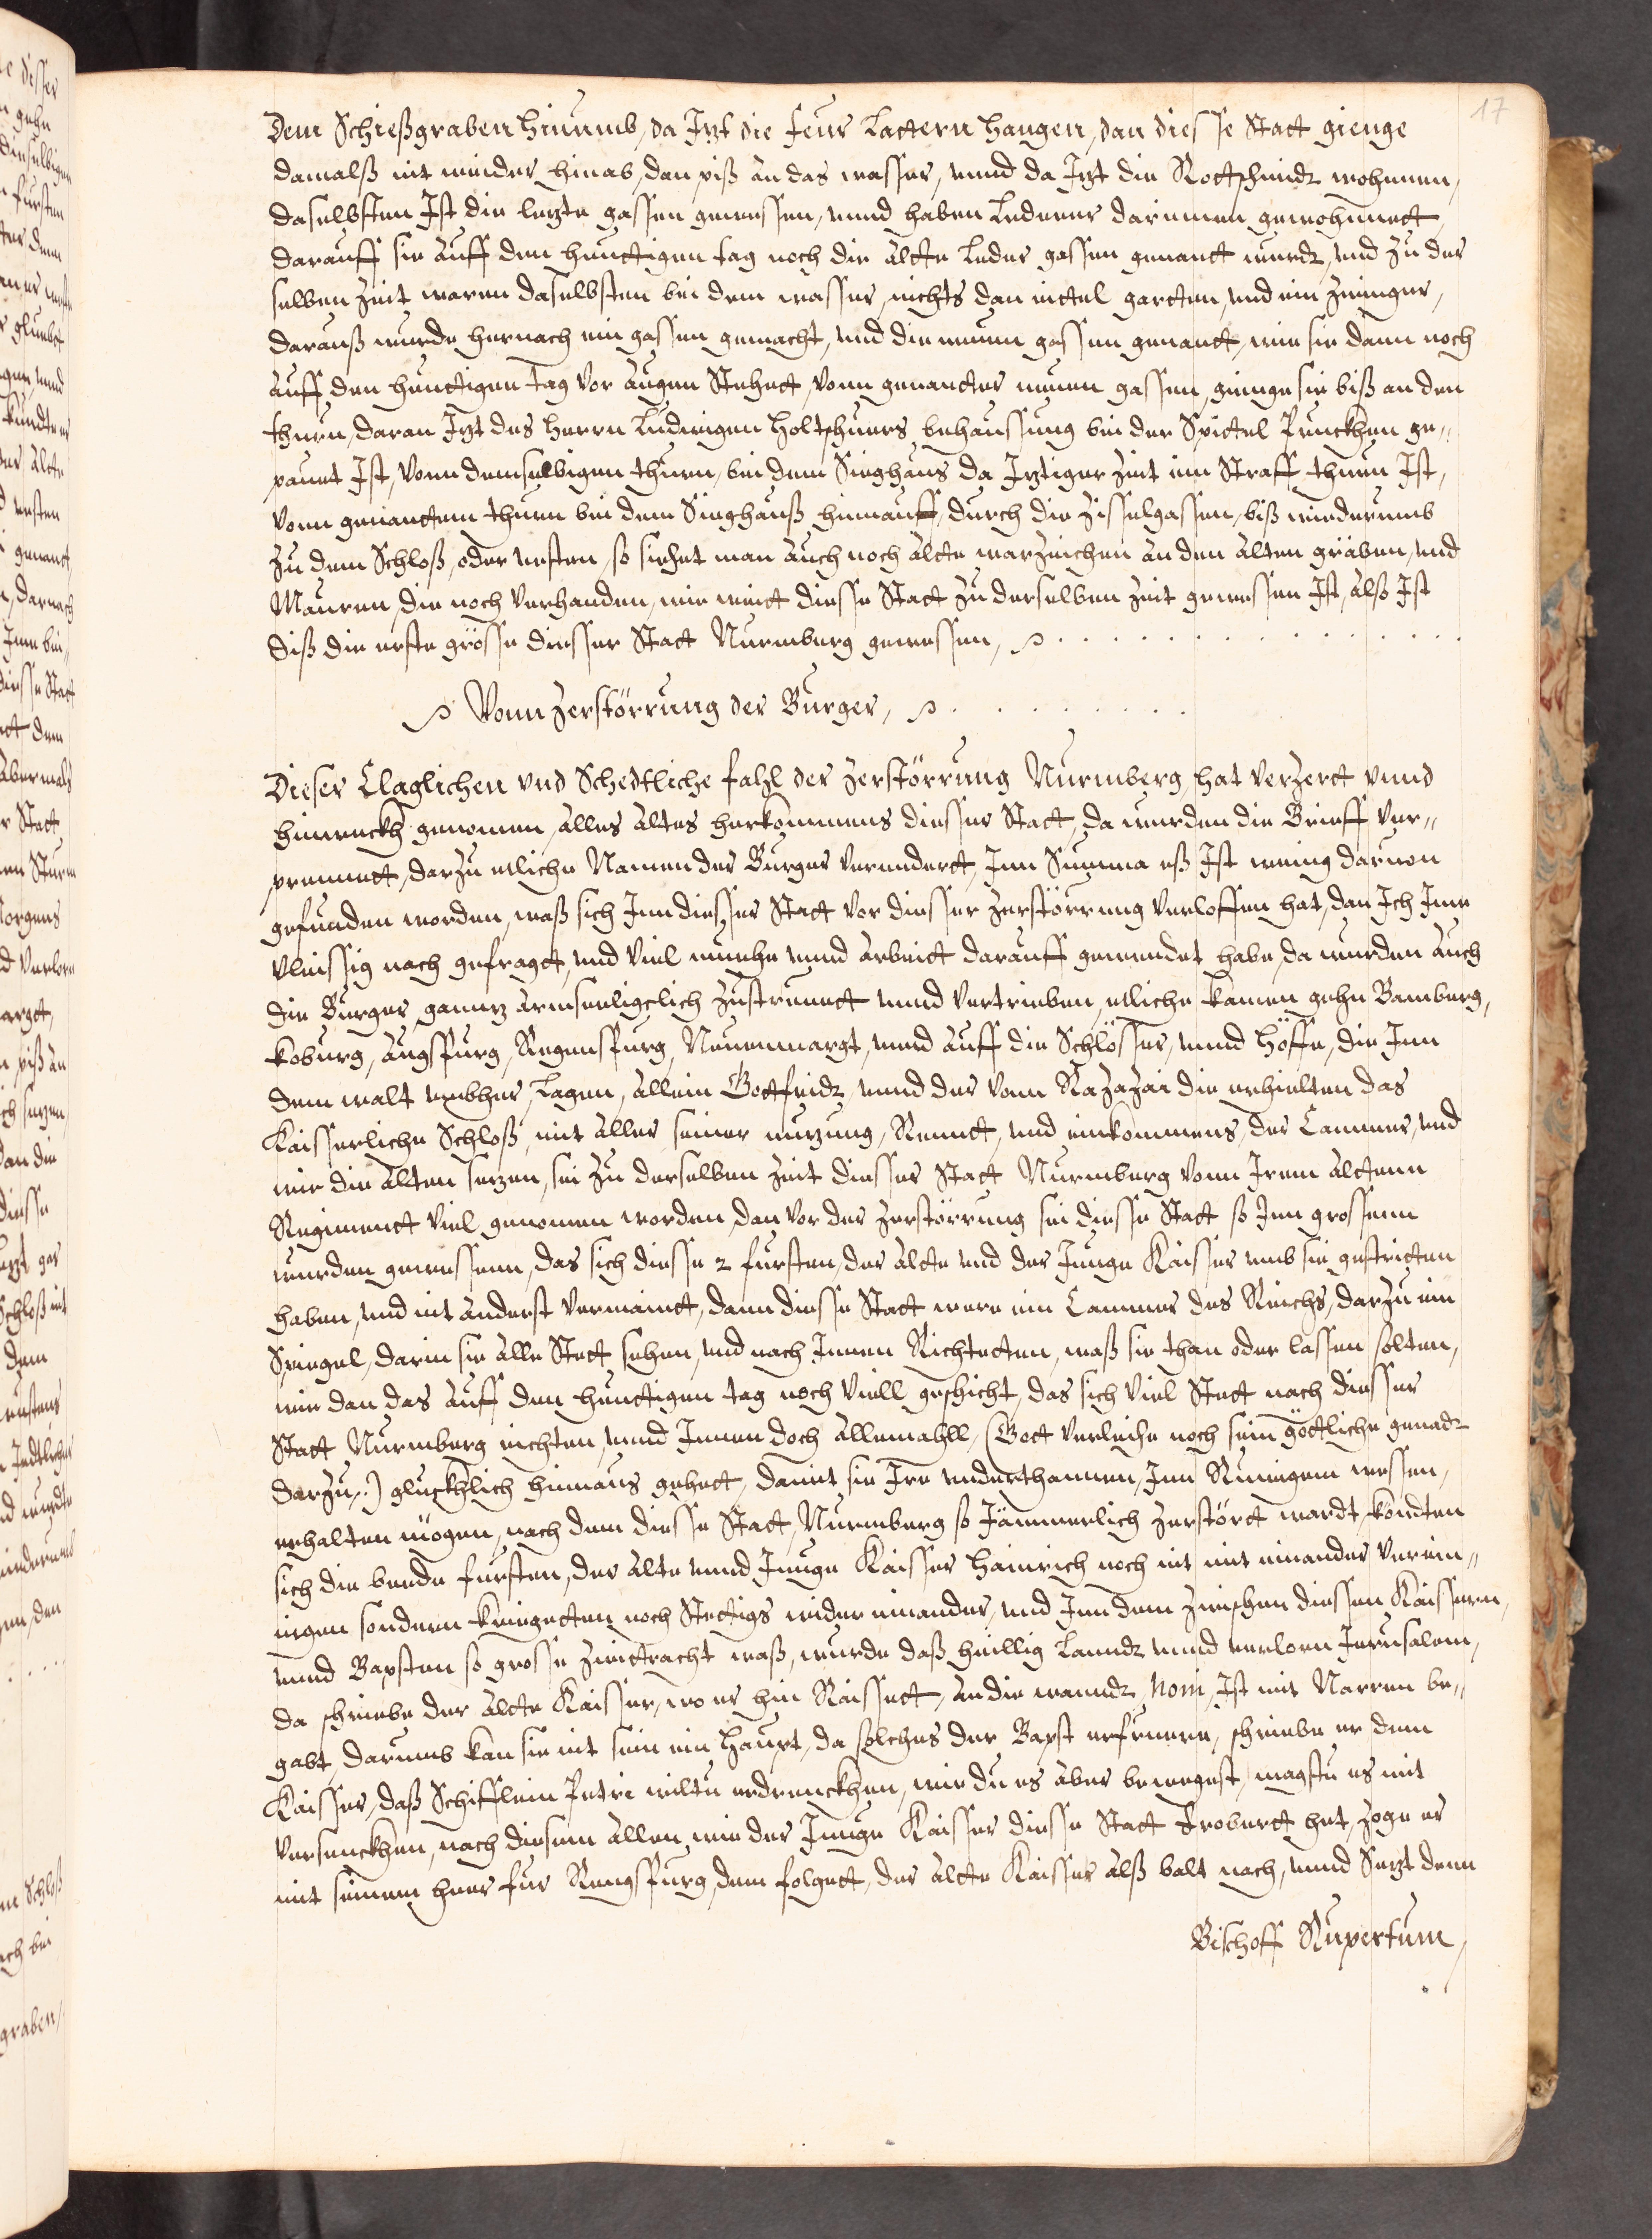 17
Dem Schießgraben hinumb, da Jtzt die feur Lattern hangen, dan diesse Statt gienge
damalß nit weider hinab, dan piß an das wasser, unnd da Jtzt die Rottschmidt wohnnen,
daselbsten Jst die letzte gassen gewessen, unnd haben Lederer darinnen gewohnnett,
darauff sie auff den heuttigen tag noch die alte Leder gassen genant wurdt, und zu der
selben Zeit waren daselbsten bei dem wasser, nichts dan eittel gartten, und ein Zwinger,
darauß wurde hernach ein gassen gemacht, und die neuen gassen genantt, wie sie dann noch
auff den heuttigen tag vor augen stehett, vonn genanter neuen gassen, gienge sie biß an den
thurn, daran Jtzt des herrn Ludwigen holtschuers behaussung bei der Spittel Pruckhen ge„
pauet Jst, vonn demselbigen thurn, bei dem Sieghaus da Jtziger Zeit ein Straff thurn Jst,
vonn genanttem thurn bei dem Sieghauß hinnauff, durch die Zisselgassen, biß wiederumb
zu dem Schloß, oder vesten, so siehet man auch noch alte warzeichen an den alten gräben, und
Mauren, die noch verhanden, wie weitt diesse Statt zu derselben Zeit gewessen Jst, also Jst
diß die erste grösse diesser Statt Nurmberg gewessen,
Vonn Zerstörrung der Burger,
Dieser Claglichen vnd Schedtliche fahl der Zerstörrung Nurmberg, hat verzert vnnd
hinweckh genomen, alles altes herkommens diesser Statt, da wurden die Brieff ver„
prennett, darzu etliche Namen der Burger verendertt, Jnn Summa eß Jst wenig darvon
gefunden worden, waß sich Jnn diesser Statt vor diesser Zerstörrung verloffen hat, dan Jch Jme
vleissig nach gefragtt, und viel muehe unnd arbeitt darauff gewendet habe, da wurden auch
die Burger gannz armseeligclich zustreuett unnd vertrieben, etliche kamen gehn Bamberg,
koburg, augspurg, Regenspurg, Neuenmargt, unnd auff die Schlösser, unnd Höffe, die Jnn
dem walt umbher, lagen, allein Gottfridt, unnd der vonn Razazai die erhielten das
Kaisserliche Schloß, mit aller seiner nutzung, Rennt, und einkommens, der Cammer, und
wie die alten setzen, sei zu derselben Zeit diesser Statt Nurmberg vonn Jrem alttenn
Regimentt viel genomen worden, dan vor der Zerstörrung sei diesse Statt so Jnn grossenn
wurden gewessenn, das sich diesse 2 fursten, der alte und der Junge Kaisser umb sie gestritten
haben, und nit anderst vermaintt, dann diesse Statt were ein Cammer des Reichs, darzu ein
Spiegel, darin sie alle Stett sehen, und nach Jnnen Richtetten, waß sie than oder lassen solten,
wie dan das auff den heuttigen tag noch viell geschicht, das sich viel Stett nach diesser
Statt Nurmberg richten, unnd Jnnen doch allemahll, (Gott verleihe noch sein göttliche genadt
darzu,) gluckhlich hinnaus gehett, damit sie Jre underthannen, Jnn Ruwigem wessen,
erhalten mögen, nach dem diesse Statt, Nurmberg so Jämmerlich Zerstörtt wardt, kondten
sich die beede fursten, der alte unnd Junge Kaisser Hainrich noch nit mit einander verein„
ingen sondern kriegetten noch Stettigs wider einander, und Jnn dem zwischen diessen Kaissern,
unnd Bapsten so grosse zwittracht waß, wurde daß heillig Lanndt unnd verlorn Jerusalem,
da schriebe der alte Kaisser, wo er hin Raissett, an die wanndt, Nom, Jst mit Narren be„
gabt, darumb kan sie nit sein ein haupt, da solches der Bapst erfuere, schriebe er dem
Kaisser, daß Schifflein Petri wiltu erdrenckhen, wie du es aber bewegest, magstu es nit
versenckhen, nach diesem allen wie der Junge Kaisser diesse Statt Erobertt het, zoge er
mit seinem heer fur Rengspurg, dem folgett, der alte Kaisser alß balt nach, unnd Setzt denn
Bischoff Rupertum,